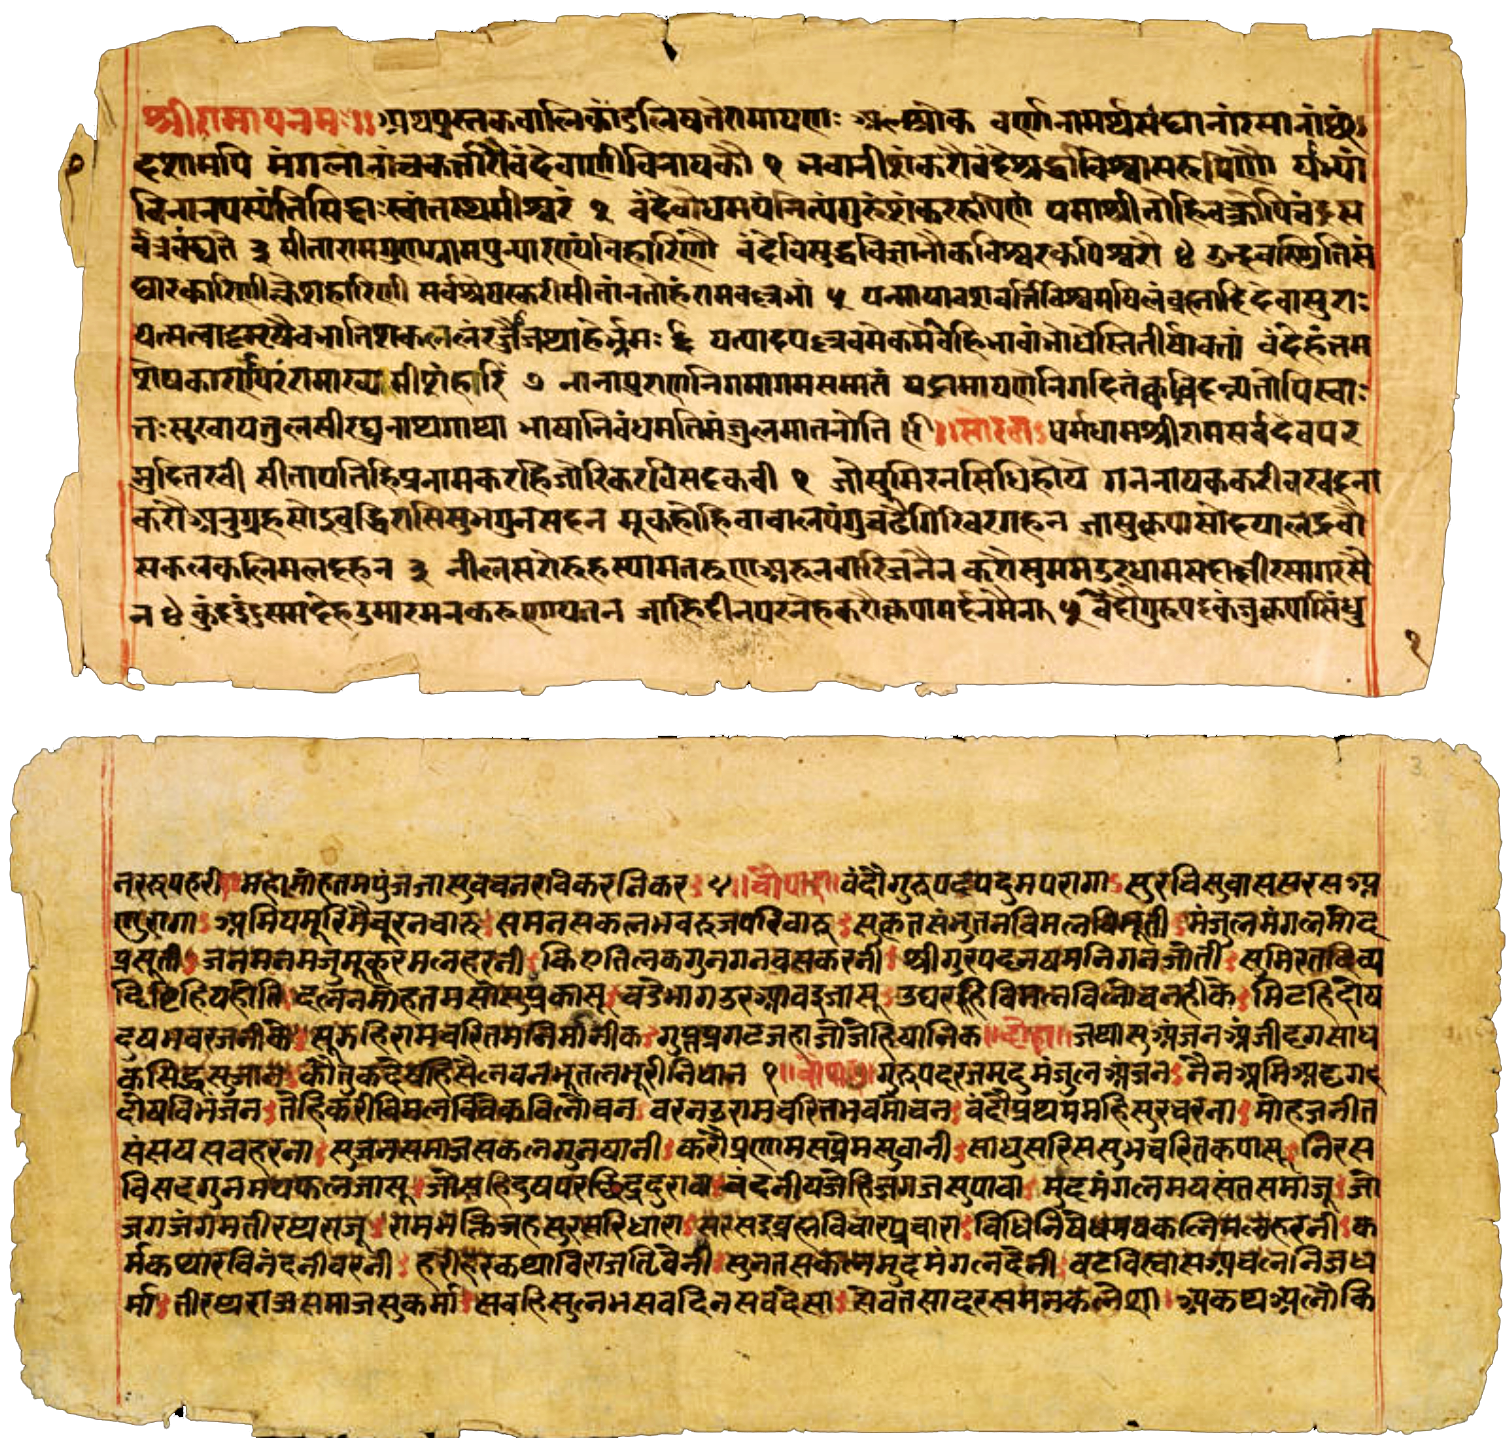 श्रीरामायनमः॥ अथपुस्तकवालिकांडलिषतेरामायणः अलश्लोक वर्णानामर्थसंघानांरसानांछं
दशामपि मंगलानांचकर्त्तारौवंदेवाणीविनायकौ १ भवानीशंकरौवंदेश्रद्धाविश्वासरूपिणौ याभ्यां
विनानपस्यंतिसिद्धाःस्वांतस्थमीश्वरं २ वंदेवोधमयंनित्यंगुरुंशंकररूपिणं यमाश्रीतोहिवक्रोपिचंद्रस
र्वत्रवंद्यते ३ सीतारामगुणग्रामपुन्यारण्यंविहारिणौ वंदेविसुद्धविज्ञानौकविश्वरकपिश्वरौ ४ उद्भवस्थितिसं
घारकारिणीक्लेशहारिणी सर्वश्रेयस्करीसीतांनतोहंरामवल्लभां ५ यन्मायावशवर्त्तिविश्वमषिलंब्रह्मादिदेवासुराः
यत्सत्वादमृषैवभातिशकलंरज्जौजथाहेर्भ्रमः ६ यत्पादप्लवमेकमेवहिभावांभोधेस्तितीर्षावतां वंदेहंतम
शेषकारणपरंरामाख्यमीशंहरिं ७ नानापुराणनिगमागमसमातं यद्रामायणेनिगदितंक्वचिदन्यतोपिस्वाः
तःसुखायतुलसीरघुनाथगाथा भाषानिवंधमतिमंजुलमातनोति ॥सोरठा धर्मधामश्रीरामसर्वदेवपर
मुदितरवी सीतापतिहिप्रनामकरहिजोरिकरविसदकवी १ जोसुमिरनसिधिहोय गननायककरीवरवदना
करौअनुग्रहसोइवुद्धिरासिसुभगुनसदन मूकहोहिवाचालपंगुचढैगिरिवरगहन जासुकृपासोदयालद्रवौ
सकलकलिमलदहन ३ नीलसरोरुहस्यामतरुणअरुनवारिजनैन करौसुममउरधामसदाक्षीरसागरसै
न ४ कुंदइंदुसमदेहउमारमनकरुणायतन जाहिदीनपरनेहकरौकृपामर्दनमैन ५ वंदौगुरुपदकंजकृपासिंधु
१
नररुपहरी महामोहतमपुंजजासुवचनरविकरनिकर ५ ॥चौपाई॥ वंदौगुरुपदपदुमपरागा सुरुचिसुवाससरसअ
णुरागा अमियमूरिमैचूरनचारु समनसकलभवरुजपरिवारु सुकृतसंभुतनविमलविभूती मंजुलमंगलमोद
प्रसूती जनमनमजुमुकुरमलहरनी किएतिलकगुनगनवसकरनी श्रीगुरपदनषमनिगनजोती सुमिरतदिव्य
दिष्टिहियहोति दलनमोहतमसोसुप्रकासू वडेभागउरआवइजासू उघरहिविमलविलोचनहीके मिटहिदोष
दुषभवरजनीके सूझहिरामचरितमनिमानीक गुप्तप्रगटजहाजोजेहिषानिक ॥दोहा॥ जथासुअंजनअंजीदृगसाध
कसिद्धसुजान कौतकदेषहिसैलवनभूतलभूरीनिधान १ ॥चौपाई॥ गुरुपदरजमृदुमंजुलअंजन नैनअमिअदृगद
दोषविभंजन तेहिकरीविमलविवेकविलोचन वरनउरामचरितभवमोचन वंदौप्रथममहिसुरचरना मोहजनीत
संसयसवहरना सुजनसमाजसकलगुनषानी करौप्रणामसप्रेमसुवानी साधुसरिससुभचरितकपासू निरस
विसदगुनमयफलजासू जोसहिदुषपरछिद्रदुरावा वंदनीयजेहिजगजसुपावा मुदमंगलमयसंतसमाजू जो
जगजंगमतीरथराजू रामभक्तिजहसुरसरिधारा सरसइव्रह्मविचारप्रचारा विधिनिषेधमयकलिमलहरनी क
र्मकथारविनंदनीवरनी हरीहरकथाविराजतिवेनी सुनतसकलमुदमंगलदेनी वटविस्वासअचलनिजध
र्मा तीरथराजसमाजसुकर्मा सवहिसुलभसवदिनसवदेसा सेवतसादरसमनकलेशा अकथअलौकि